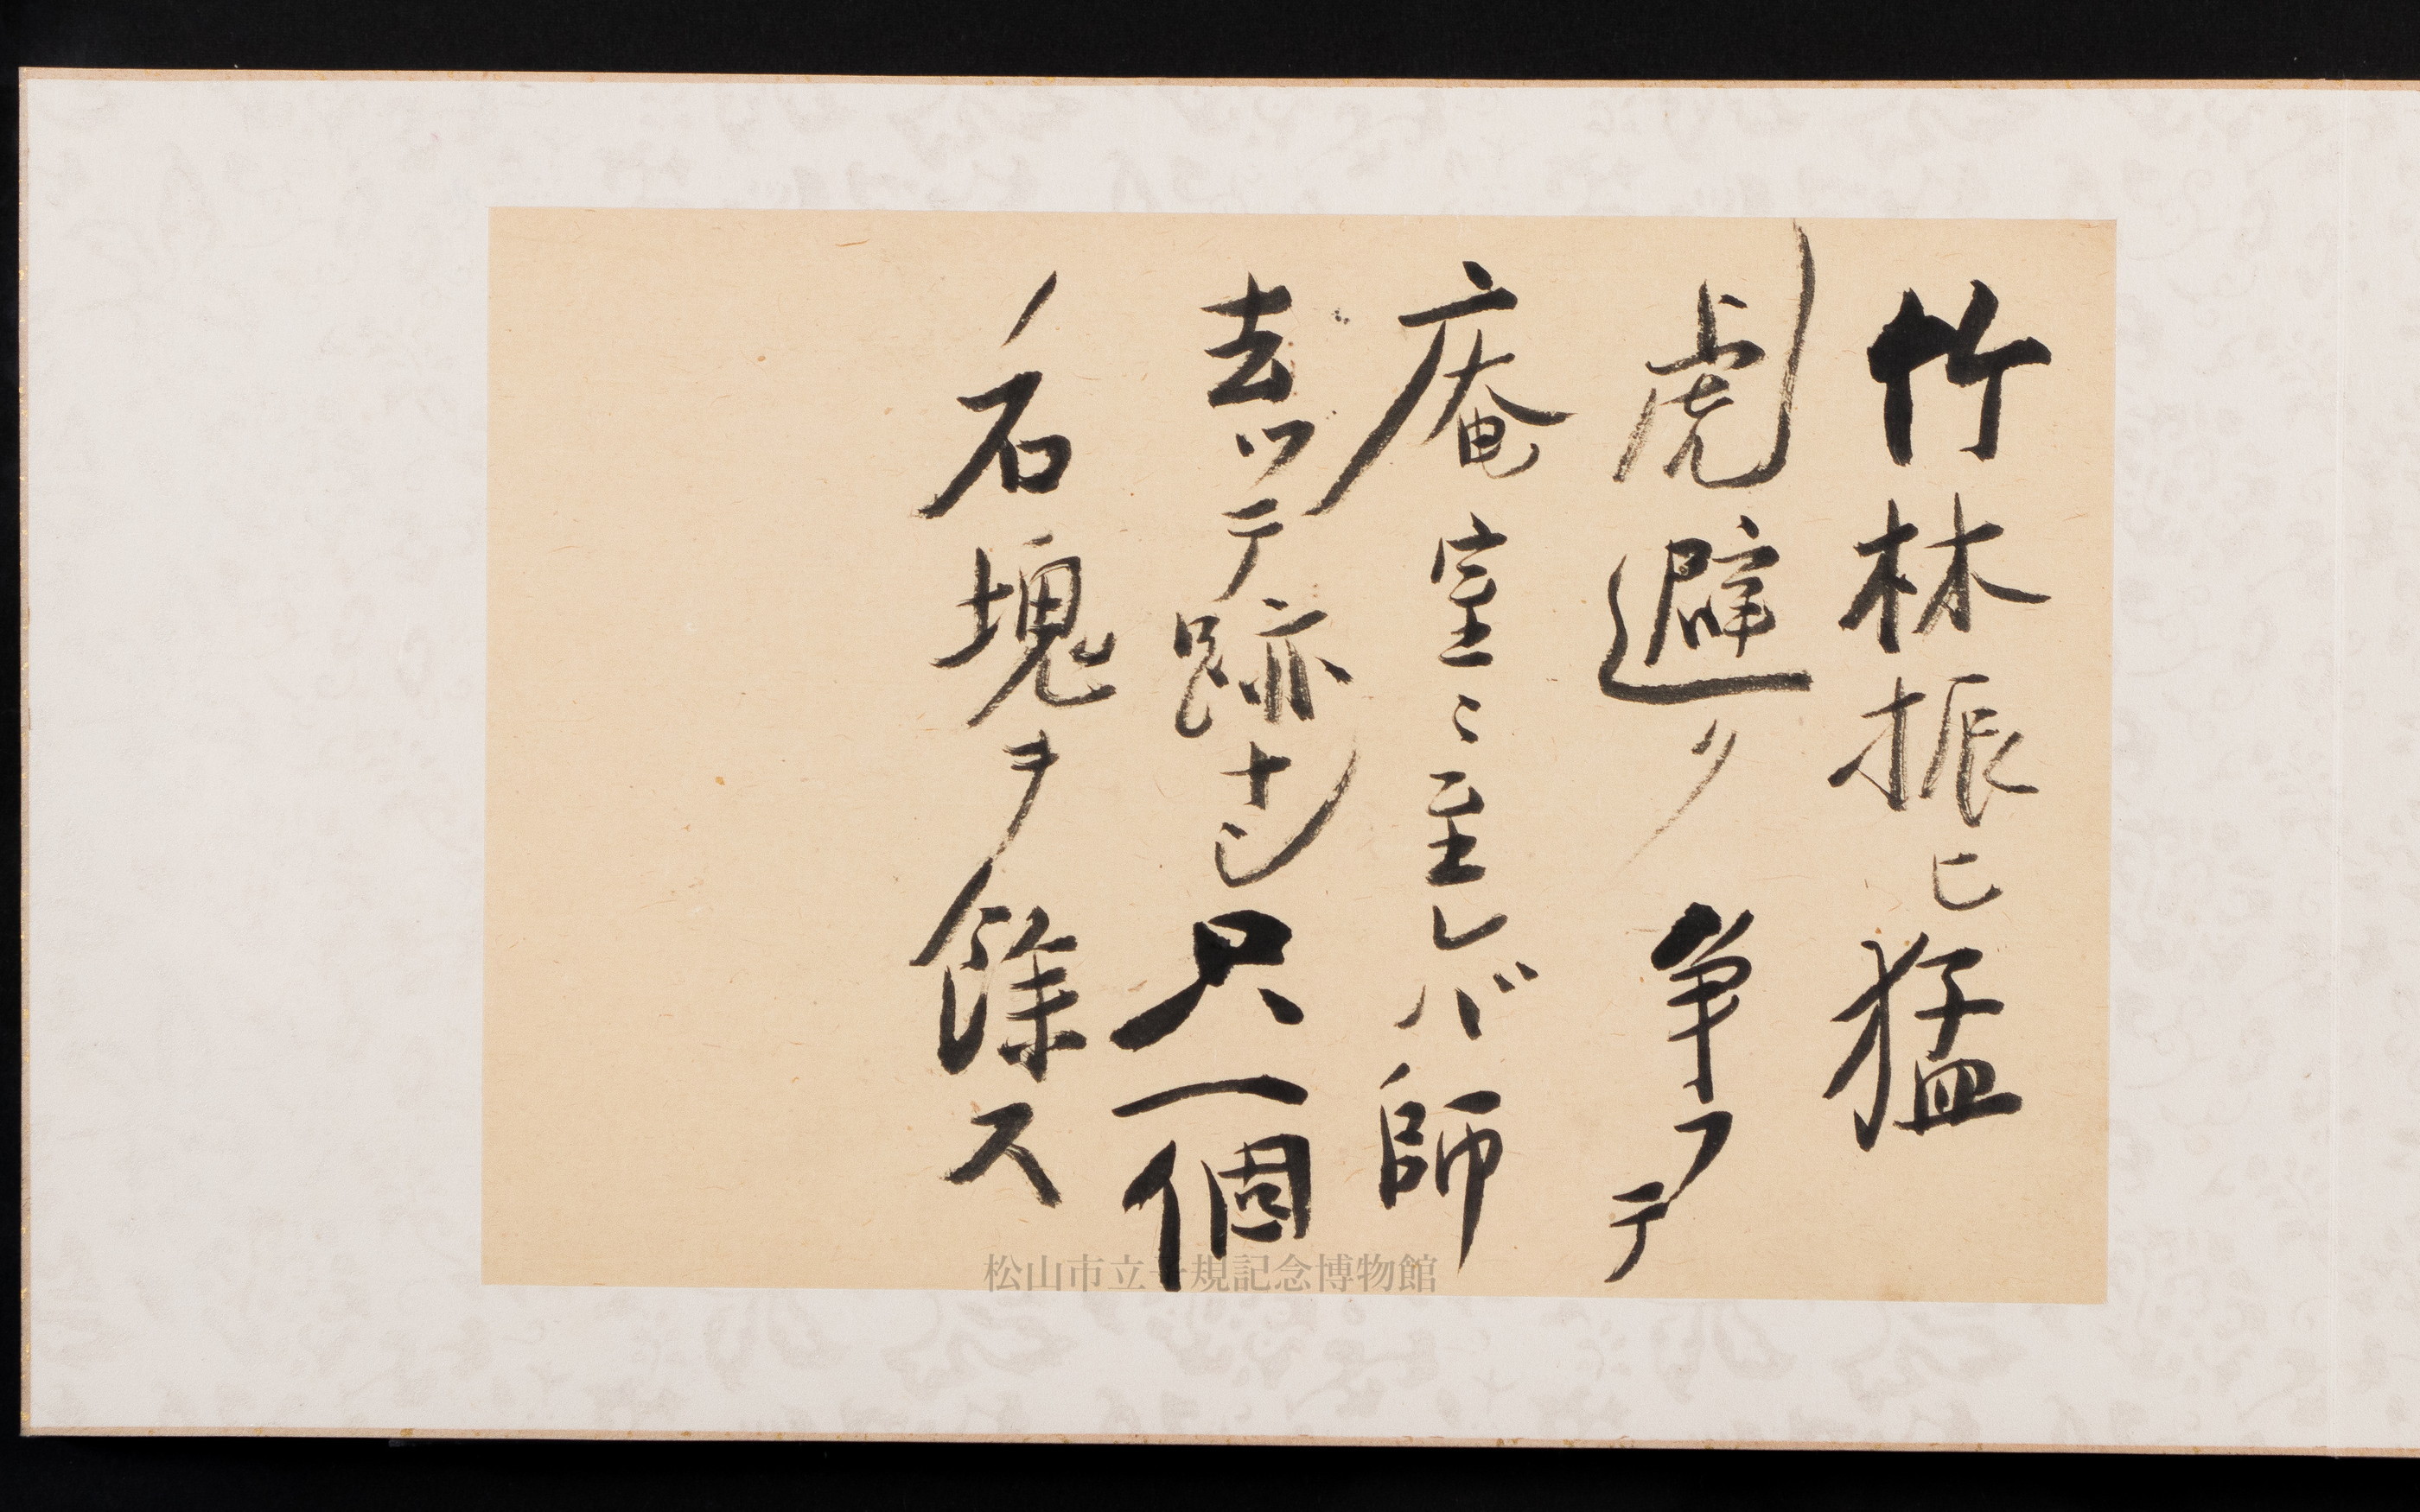 竹林振ヒ猛
虎避ク争フテ
庵室ニ至レバ師
去ツテ跡ナシ只一個
ノ石塊ヲ餘ス
松山市立子規記念博物館